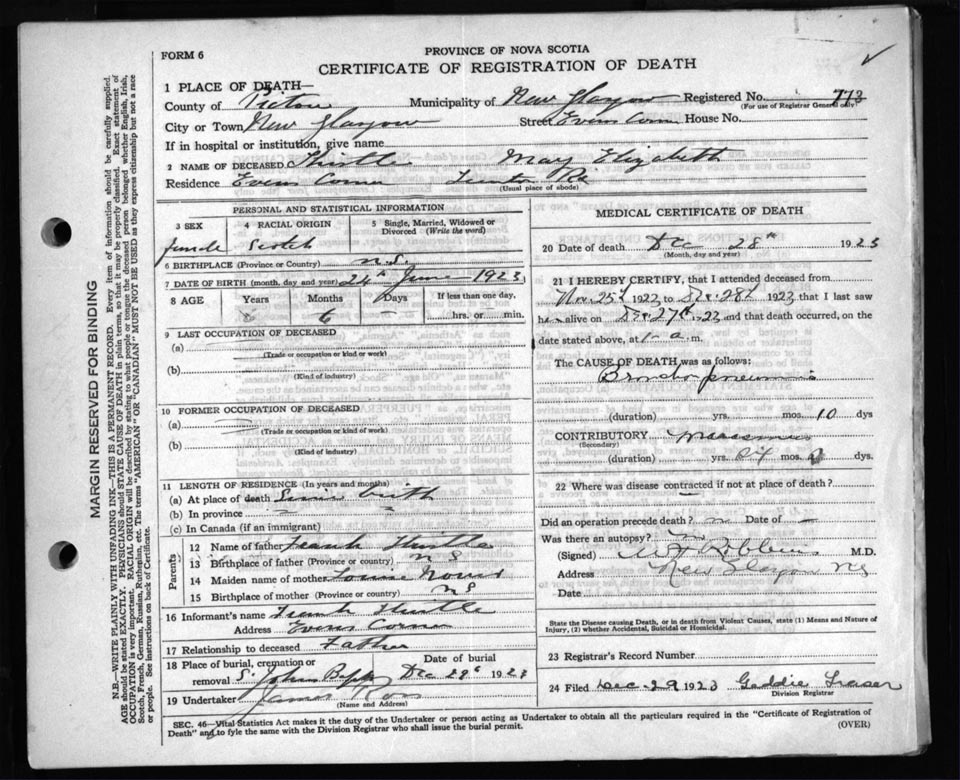 PROVINCE OF NOVA SCOTIA
FORM 6
CERTIFICATE OF REGISTRATION OF DEATH
1 PLACE OF DEATH—
County of Pictou Municipality of New Glasgow Registered No. 773
(For use of Registrar General only)
City or Town New Glasgow Street Evens Corner House No.
If in hospital or institution, give name
2 NAME OF DECEASED Thistle May Elizabeth
Residence Evens Corner Rd
(Usual place of abode)
PERSONAL AND STATISTICAL INFORMATION
3 SEX 4 RACIAL ORIGIN 5 Single, Married, Widowed or Divorced (Write the word)
female Scotch
6 BIRTHPLACE (Province or Country) N.S.
7 DATE OF BIRTH (month, day and year) 24th June 1923
8 AGE Years Months Days If less than one day,
6 hrs. or min.
9 LAST OCCUPATION OF DECEASED
(a)
(Trade or occupation or kind of work)
(b)
(Kind of industry)
10 FORMER OCCUPATION OF DECEASED
(a)
(Trade or occupation or kind of work)
(b)
(Kind of industry)
11 LENGTH OF RESIDENCE (In years and months)
(a) At place of death Since birth
(b) In province
(c) In Canada (if an immigrant)
Parents
12 Name of father Frank Thistle
13 Birthplace of father (Province or country) N S
14 Maiden name of mother Louise
15 Birthplace of mother (Province or country) N S
16 Informant's name Frank Thistle
Address Evens Corner
17 Relationship to deceased Father
18 Place of burial, cremation or removal S. Johns Date of burial Dec 29th 1923
19 Undertaker James Ross
(Name and Address)
MEDICAL CERTIFICATE OF DEATH
20 Date of death Dec 28th 1923
(Month, day and year)
21 I HEREBY CERTIFY, that I attended deceased from
Nov. 25th 1923 to Dec. 28th 1923 that I last saw
her alive on Dec 27th 1923 and that death occurred, on
date stated above, at 1 a. m.
The CAUSE OF DEATH was as follows:
Broncho pneumonia
(duration) yrs. mos. 10 dys
CONTRIBUTORY marasmus
(Secondary)
(duration) yrs. six mos. dys.
22 Where was disease contracted if not at place of death?
Did an operation precede death? no Date of —
Was there an autopsy? no
(Signed) Robbins M.D.
Address New Glasgow NS
Date
State the Disease causing Death, or in death from Violent Causes, state (1) Means and Nature of
Injury, (2) whether Accidental, Suicidal or Homicidal.
23 Registrar's Record Number
24 Filed Dec. 29 1923 Geddie Fraser
Division Registrar
SEC. 46—Vital Statistics Act makes it the duty of the Undertaker or person acting as Undertaker to obtain all the particulars required in the "Certificate of Registration of
Death" and to fyle the same with the Division Registrar who shall issue the burial permit.
(OVER)
MARGIN RESERVED FOR BINDING
N.B.—WRITE PLAINLY WITH UNFADING INK—THIS IS A PERMANENT RECORD. Every item of information should be carefully supplied.
AGE should be stated EXACTLY. PHYSICIANS should STATE CAUSE OF DEATH in plain terms, so that it may be properly classified. Exact statement of
OCCUPATION is very important. RACIAL ORIGIN will be described by stating to what people or tongue the deceased person belonged whether English, Irish,
Scotch, French, German, Russian, Ruthenian, etc. The terms "AMERICAN" OR "CANADIAN" MUST NOT BE USED as they express citizenship but not a race
or people. See instructions on back of Certificate.